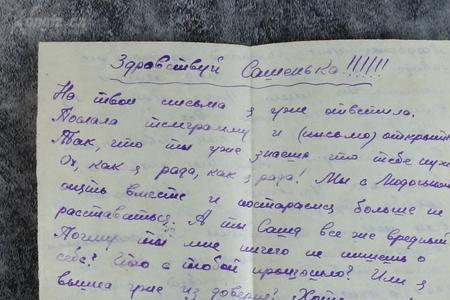 Здравствуй Сашенька!!!!!!
На твои письма я уже ответила.
Послала телеграмму и (письмо) открытк
Так, что ты уже знаешь что тебе нуж
Ох, как я рада, как я рада! Мы с Людочькой
опять вместе и постараемся больше не
расставаться. А ты Саша все же вредный
Почему ты мне ничего не пишешь о
себе? Что с тобой произошло? Или я
вышла уже из доверия?